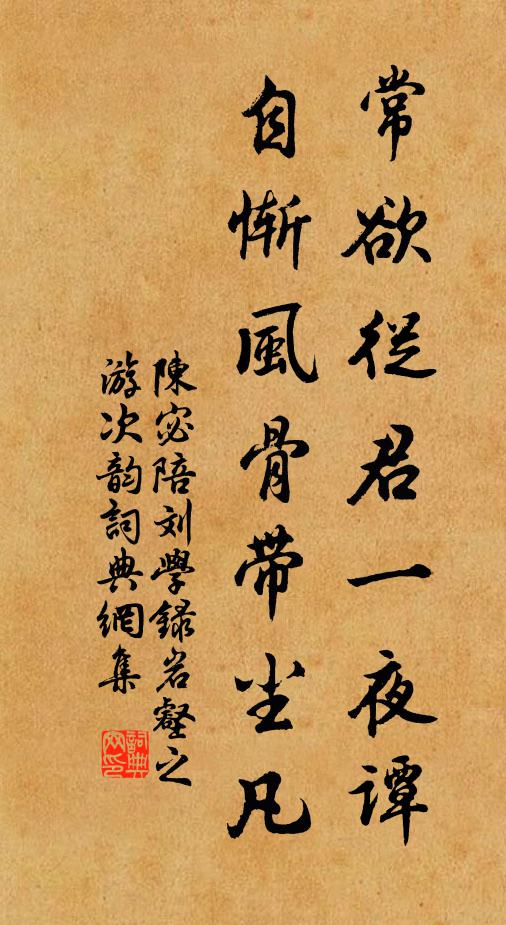 常欲從君一夜譚
自惭風骨帶尘凡
陳宓陪刘學録岩壑之
游次韵詞典網集
詞典網印